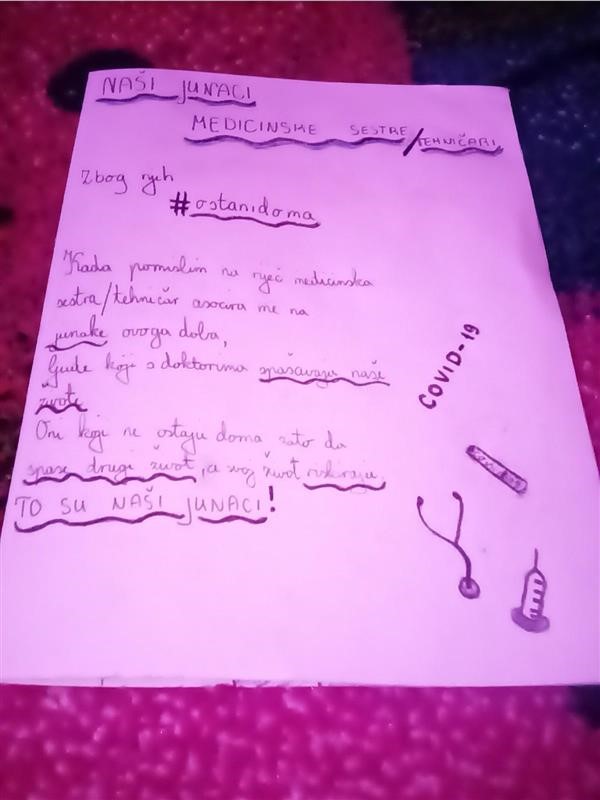 NAŠI JUNACI
MEDICINSKE SESTRE/TEHNIČARI
Zbog njih
#ostanidoma
Kada pomislim na riječ medicinska
sestra/tehničar asocira me na
junake ovoga doba,
ljude koji s doktorima spašavaju naše
živote
Oni koji ne ostaju doma zato da
spase drugi život, a svoj život riskiraju.
TO SU NAŠI JUNACI!
COVID-19